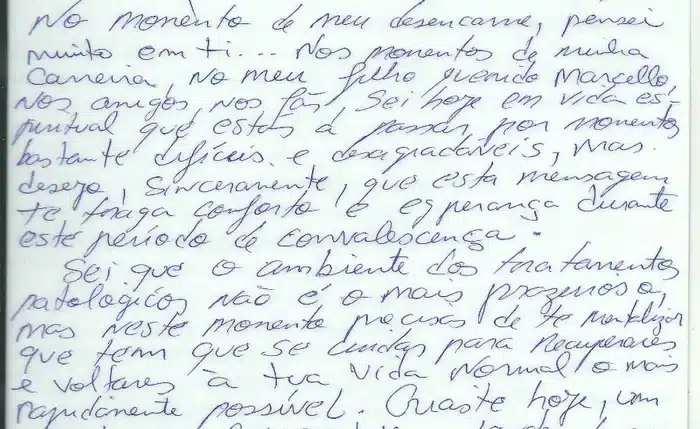 No momento de meu desencarne, pensei
muito em ti... Nos momentos de minha
Carreira, no meu filho querido Marcello,
nos amigos, nos fãs, Sei hoje em vida es-
piritual que estás a passar por momentos
bastante difíceis e desagradáveis, mas
desejo, sinceramente, que esta mensagem
te traga conforto e esperança durante
este período de convalescença.
Sei que o ambiente dos tratamentos
patológicos não é o mais prazeroso,
mas neste momento precisas de te mentalizar
que tem que se cuidar para recuperares
e voltares à tua vida normal o mais
rapidamente possível. hoje, um